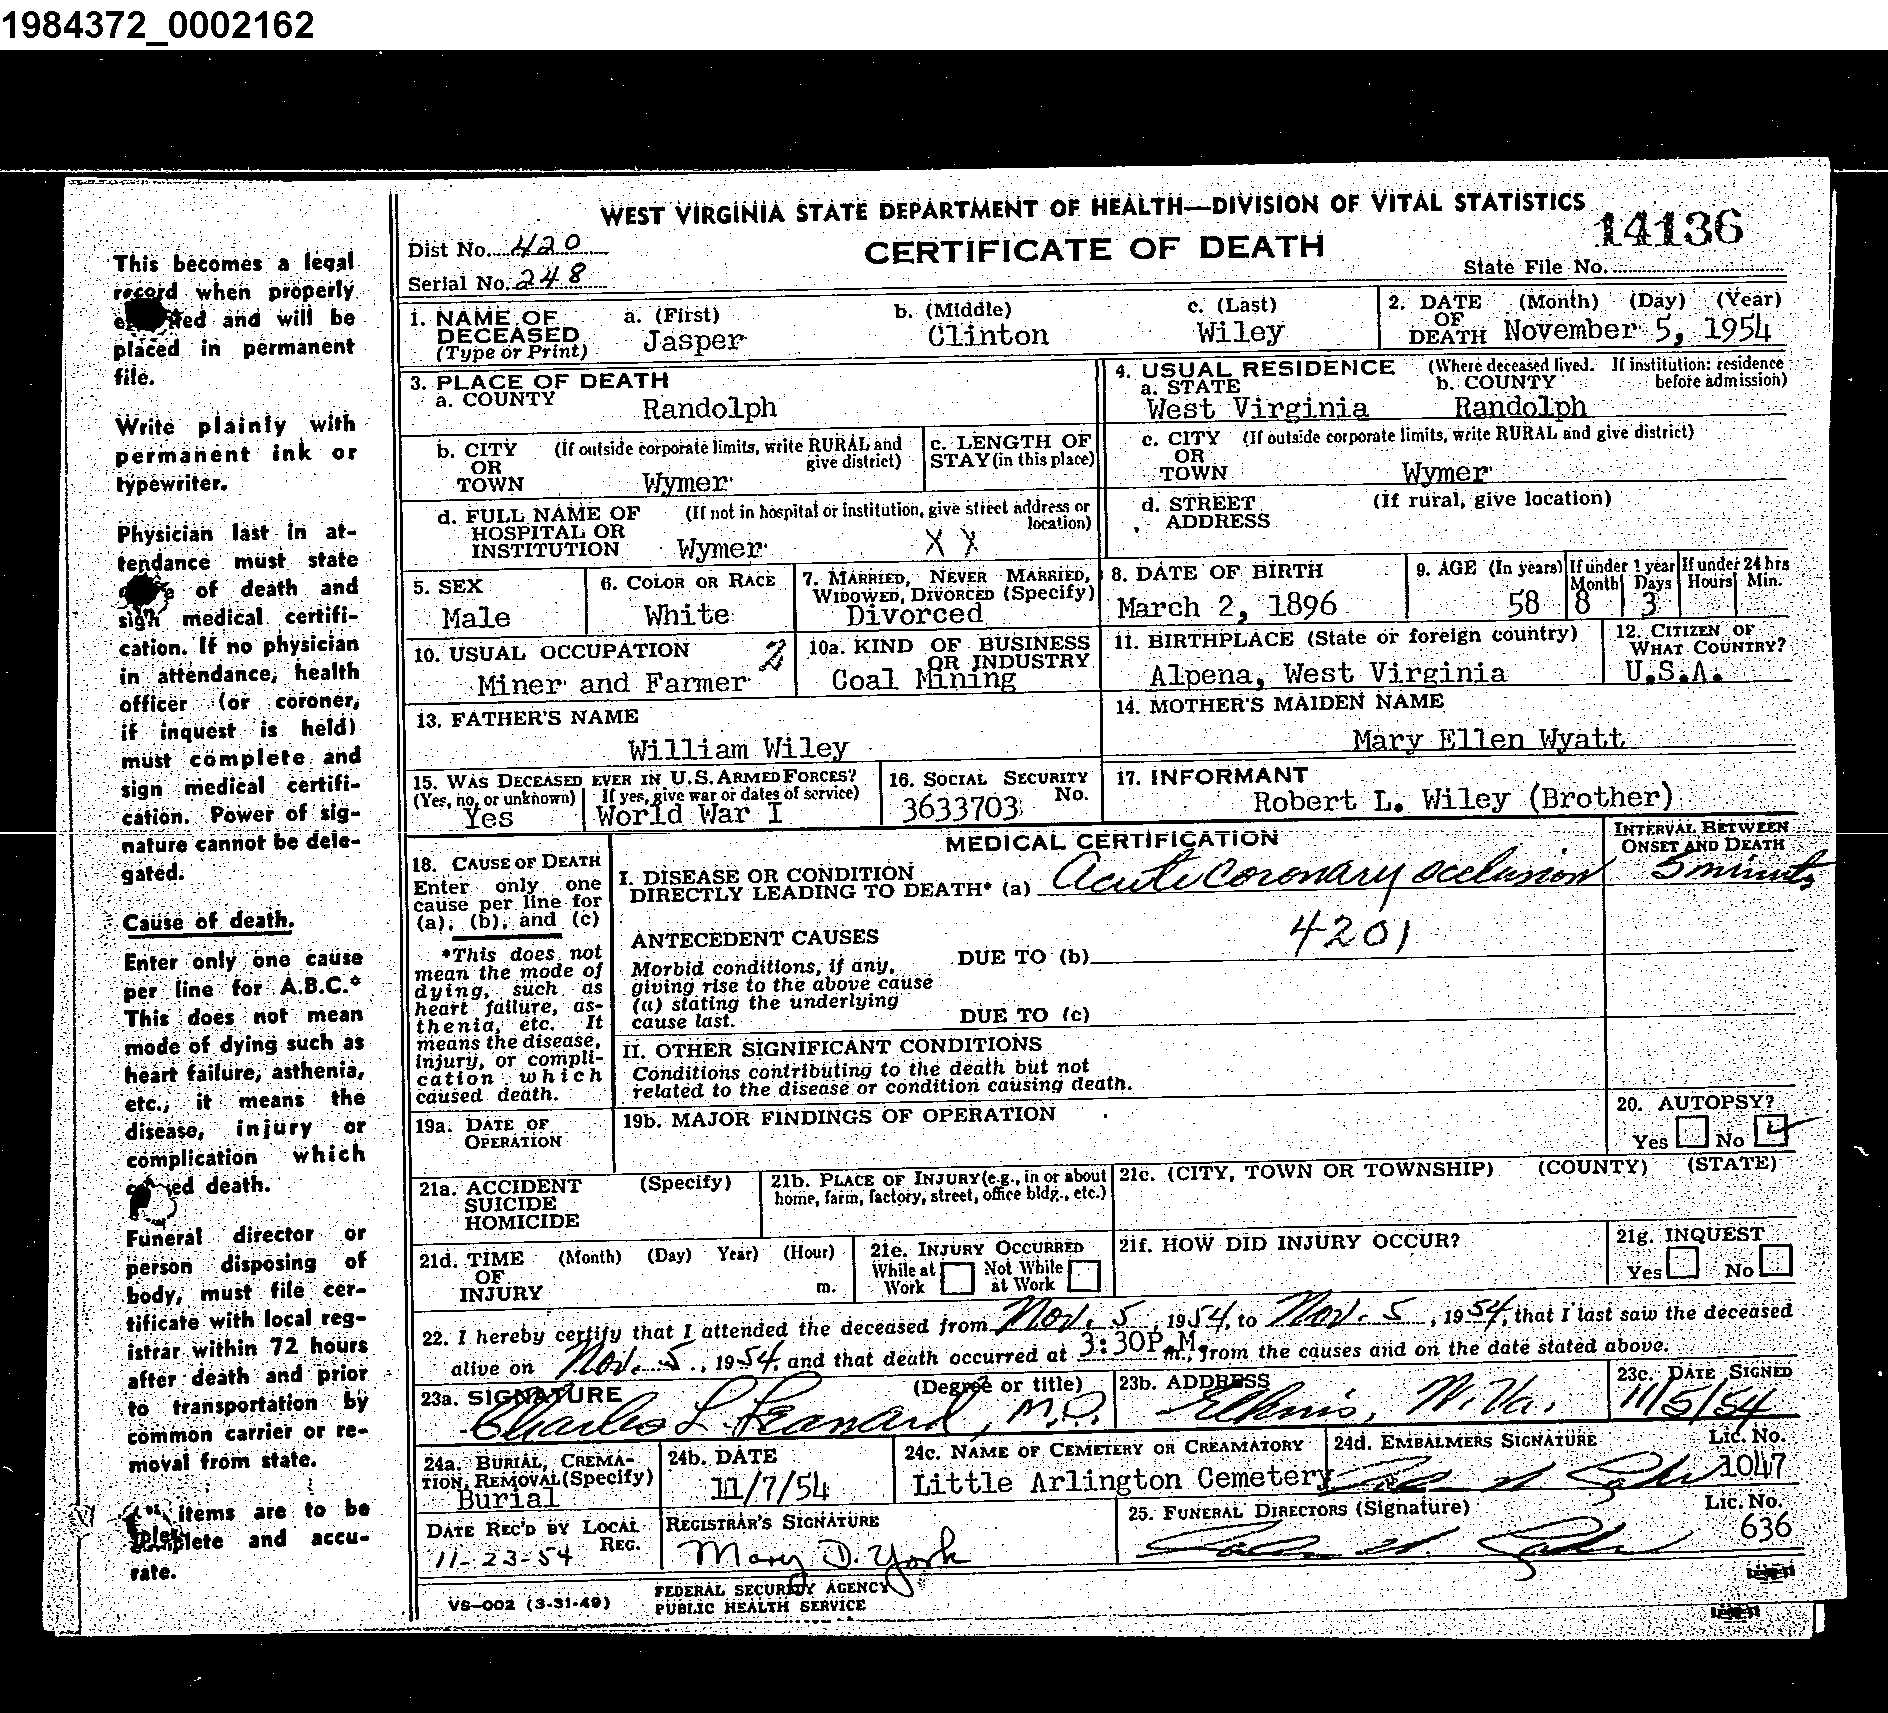 1984372_0002162
WEST VIRGINIA STATE DEPARTMENT OF HEALTH—DIVISION OF VITAL STATISTICS
14136
Dist No. 420
CERTIFICATE OF DEATH
Serial No. 248
State File No.
This becomes a legal
record when properly
and will be
placed in permanent
file.
Write plainly with
permanent ink or
typewriter.
Physician last in at-
tendance must state
of death and
sign medical certifi-
cation. If no physician
in attendance, health
officer (or coroner,
if inquest is held)
must complete and
sign medical certifi-
cation. Power of sig-
nature cannot be dele-
gated.
Cause of death.
Enter only one cause
per line for A.B.C.*
This does not mean
mode of dying such as
heart failure, asthenia,
etc., it means the
disease, injury or
complication which
death.
Funeral director or
person disposing of
body, must file cer-
tificate with local reg-
istrar within 72 hours
after death and prior
to transportation by
common carrier or re-
moval from state.
items are to be
and accu-
rate.
1. NAME OF DECEASED (Type or Print)
a. (First) Jasper
b. (Middle) Clinton
c. (Last) Wiley
2. DATE OF DEATH (Month) (Day) (Year) November 5, 1954
3. PLACE OF DEATH
a. COUNTY Randolph
4. USUAL RESIDENCE (Where deceased lived. If institution: residence before admission)
a. STATE West Virginia
b. COUNTY Randolph
b. CITY OR TOWN (If outside corporate limits, write RURAL and give district) Wymer
c. LENGTH OF STAY (in this place)
c. CITY OR TOWN (If outside corporate limits, write RURAL and give district) Wymer
d. FULL NAME OF HOSPITAL OR INSTITUTION (If not in hospital or institution, give street address or location) Wymer X X
d. STREET ADDRESS (If rural, give location)
5. SEX Male
6. COLOR OR RACE White
7. MARRIED, NEVER MARRIED, WIDOWED, DIVORCED (Specify) Divorced
8. DATE OF BIRTH March 2, 1896
9. AGE (In years) 58
If under 1 year Month 8 Days 3
If under 24 hrs Hours Min.
10. USUAL OCCUPATION 2 Miner and Farmer
10a. KIND OF BUSINESS OR INDUSTRY Coal Mining
11. BIRTHPLACE (State or foreign country) Alpena, West Virginia
12. CITIZEN OF WHAT COUNTRY? U.S.A.
13. FATHER'S NAME William Wiley
14. MOTHER'S MAIDEN NAME Mary Ellen Wyatt
15. WAS DECEASED EVER IN U.S. ARMED FORCES?
(Yes, no, or unknown) Yes
If yes, give war or dates of service) World War I
16. SOCIAL SECURITY No. 3633703
17. INFORMANT Robert L. Wiley (Brother)
MEDICAL CERTIFICATION
INTERVAL BETWEEN ONSET AND DEATH
18. CAUSE OF DEATH
Enter only one
cause per line for
(a), (b), and (c)
*This does not
mean the mode of
dying, such as
heart failure, as-
thenia, etc. It
means the disease,
injury, or compli-
cation which
caused death.
I. DISEASE OR CONDITION
DIRECTLY LEADING TO DEATH* (a) Acute Coronary occlusion 5 minuts
ANTECEDENT CAUSES
4201
DUE TO (b)
Morbid conditions, if any,
giving rise to the above cause
(a) stating the underlying
cause last.
DUE TO (c)
II. OTHER SIGNIFICANT CONDITIONS
Conditions contributing to the death but not
related to the disease or condition causing death.
19a. DATE OF OPERATION
19b. MAJOR FINDINGS OF OPERATION
20. AUTOPSY?
Yes No
21a. ACCIDENT SUICIDE HOMICIDE (Specify)
21b. PLACE OF INJURY (e.g., in or about home, farm, factory, street, office bldg., etc.)
21c. (CITY, TOWN OR TOWNSHIP) (COUNTY) (STATE)
21d. TIME OF INJURY (Month) (Day) Year) (Hour) m.
21e. INJURY OCCURRED
While at Work Not While at Work
21f. HOW DID INJURY OCCUR?
21g. INQUEST
Yes No
22. I hereby certify that I attended the deceased from Nov. 5, 1954, to Nov. 5, 1954, that I last saw the deceased
alive on Nov. 5, 1954, and that death occurred at 3:30P.M. m., from the causes and on the date stated above.
23a. SIGNATURE (Degree or title) Charles L. Leonard, M.D.
23b. ADDRESS Elkins, W. Va.
23c. DATE SIGNED 11/5/54
24a. BURIAL, CREMA-
TION, REMOVAL (Specify) Burial
24b. DATE 11/7/54
24c. NAME OF CEMETERY OR CREAMATORY Little Arlington Cemetery
24d. EMBALMERS SIGNATURE Lic. No. 1047
DATE REC'D BY LOCAL REG. 11-23-54
REGISTRAR'S SIGNATURE Mary D. York
25. FUNERAL DIRECTORS (Signature) Lic. No. 636
VS-002 (3-31-49)
FEDERAL SECURITY AGENCY
PUBLIC HEALTH SERVICE